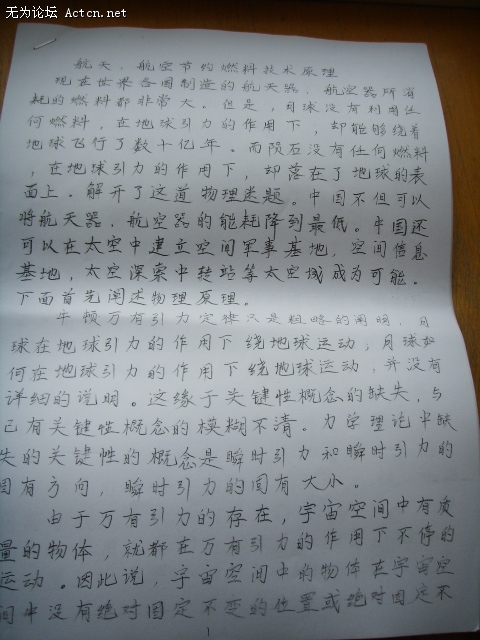 无为论坛 Actcn.net
航天、航空节约燃料技术原理
现在世界各国制造的航天器、航空器所有
耗的燃料都非常大。但是,月球没有利用任
何燃料,在地球引力的作用下,却能够绕着
地球飞行了数十亿年。而陨石没有任何燃料
,在地球引力的作用下,却落在了地球的表
面上。解开了这道物理迷题。中国不但可以
将航天器、航空器的能耗降到最低。中国还
可以在太空中建立空间军事基地,空间信息
基地,太空深索中转站等太空城成为可能。
下面首先阐述物理原理。
牛顿万有引力定律只是粗略的阐明,月
球在地球引力的作用下绕地球运动;月球如
何在地球引力的作用下绕地球运动,并没有
详细的说明。这缘于关键性概念的缺失,与
已有关键性概念的模糊不清。力学理论中缺
失的关键性的概念是瞬时引力和瞬时引力的
固有方向,瞬时引力的固有大小。
由于万有引力的存在,宇宙空间中有质
量的物体,就都在万有引力的作用下不停的
运动。因此说,宇宙空间中的物体在宇宙空
间中没有绝对固定不变的位置或绝对固定不
1